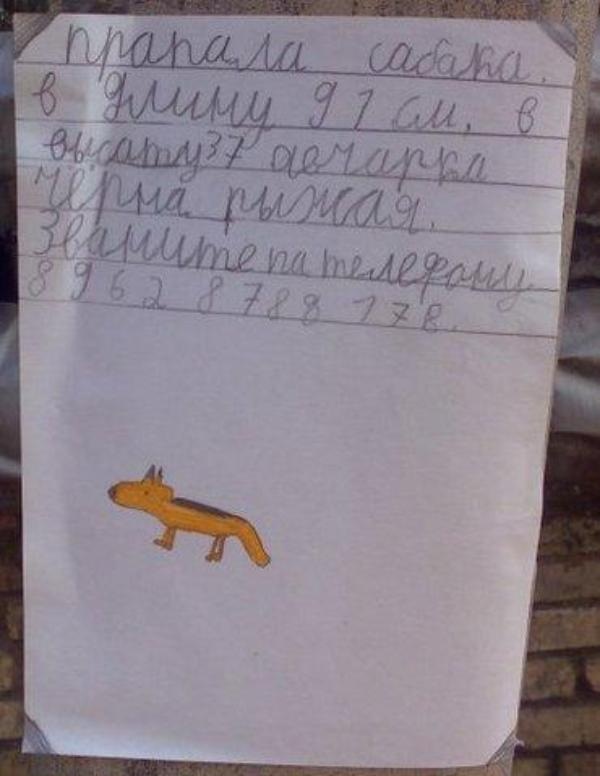 прапала сабака.
в длину 91 см. в
высату 37 авчарка
чёрна рыжая.
Званите па телефону
8 9 6 2 8 7 8 8 1 7 8.